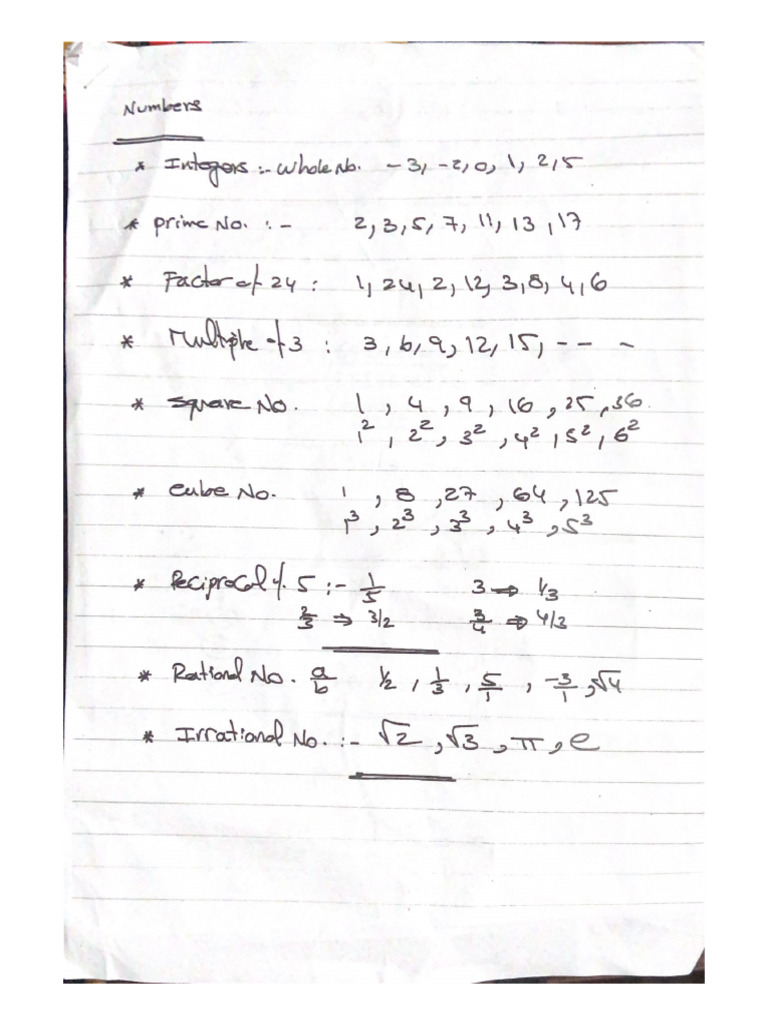 Numbers
* Integers :- Whole No. -3, -2, 0, 1, 2, 5
* Prime No. :- 2, 3, 5, 7, 11, 13, 17
* Factor of 24 : 1, 24, 2, 12, 3, 8, 4, 6
* Multiple of 3 : 3, 6, 9, 12, 15, -- -
* Square No. 1, 4, 9, 16, 25, 36
1², 2², 3², 4², 5², 6²
* Cube No. 1, 8, 27, 64, 125
1³, 2³, 3³, 4³, 5³
* Reciprocal of 5 :- 1/5 3 ⇒ 1/3
2/3 ⇒ 3/2 3/4 ⇒ 4/3
* Rational No. a/b 1/2, 1/3, 5/1, -3/1, √4
* Irrational No. :- √2, √3, π, e